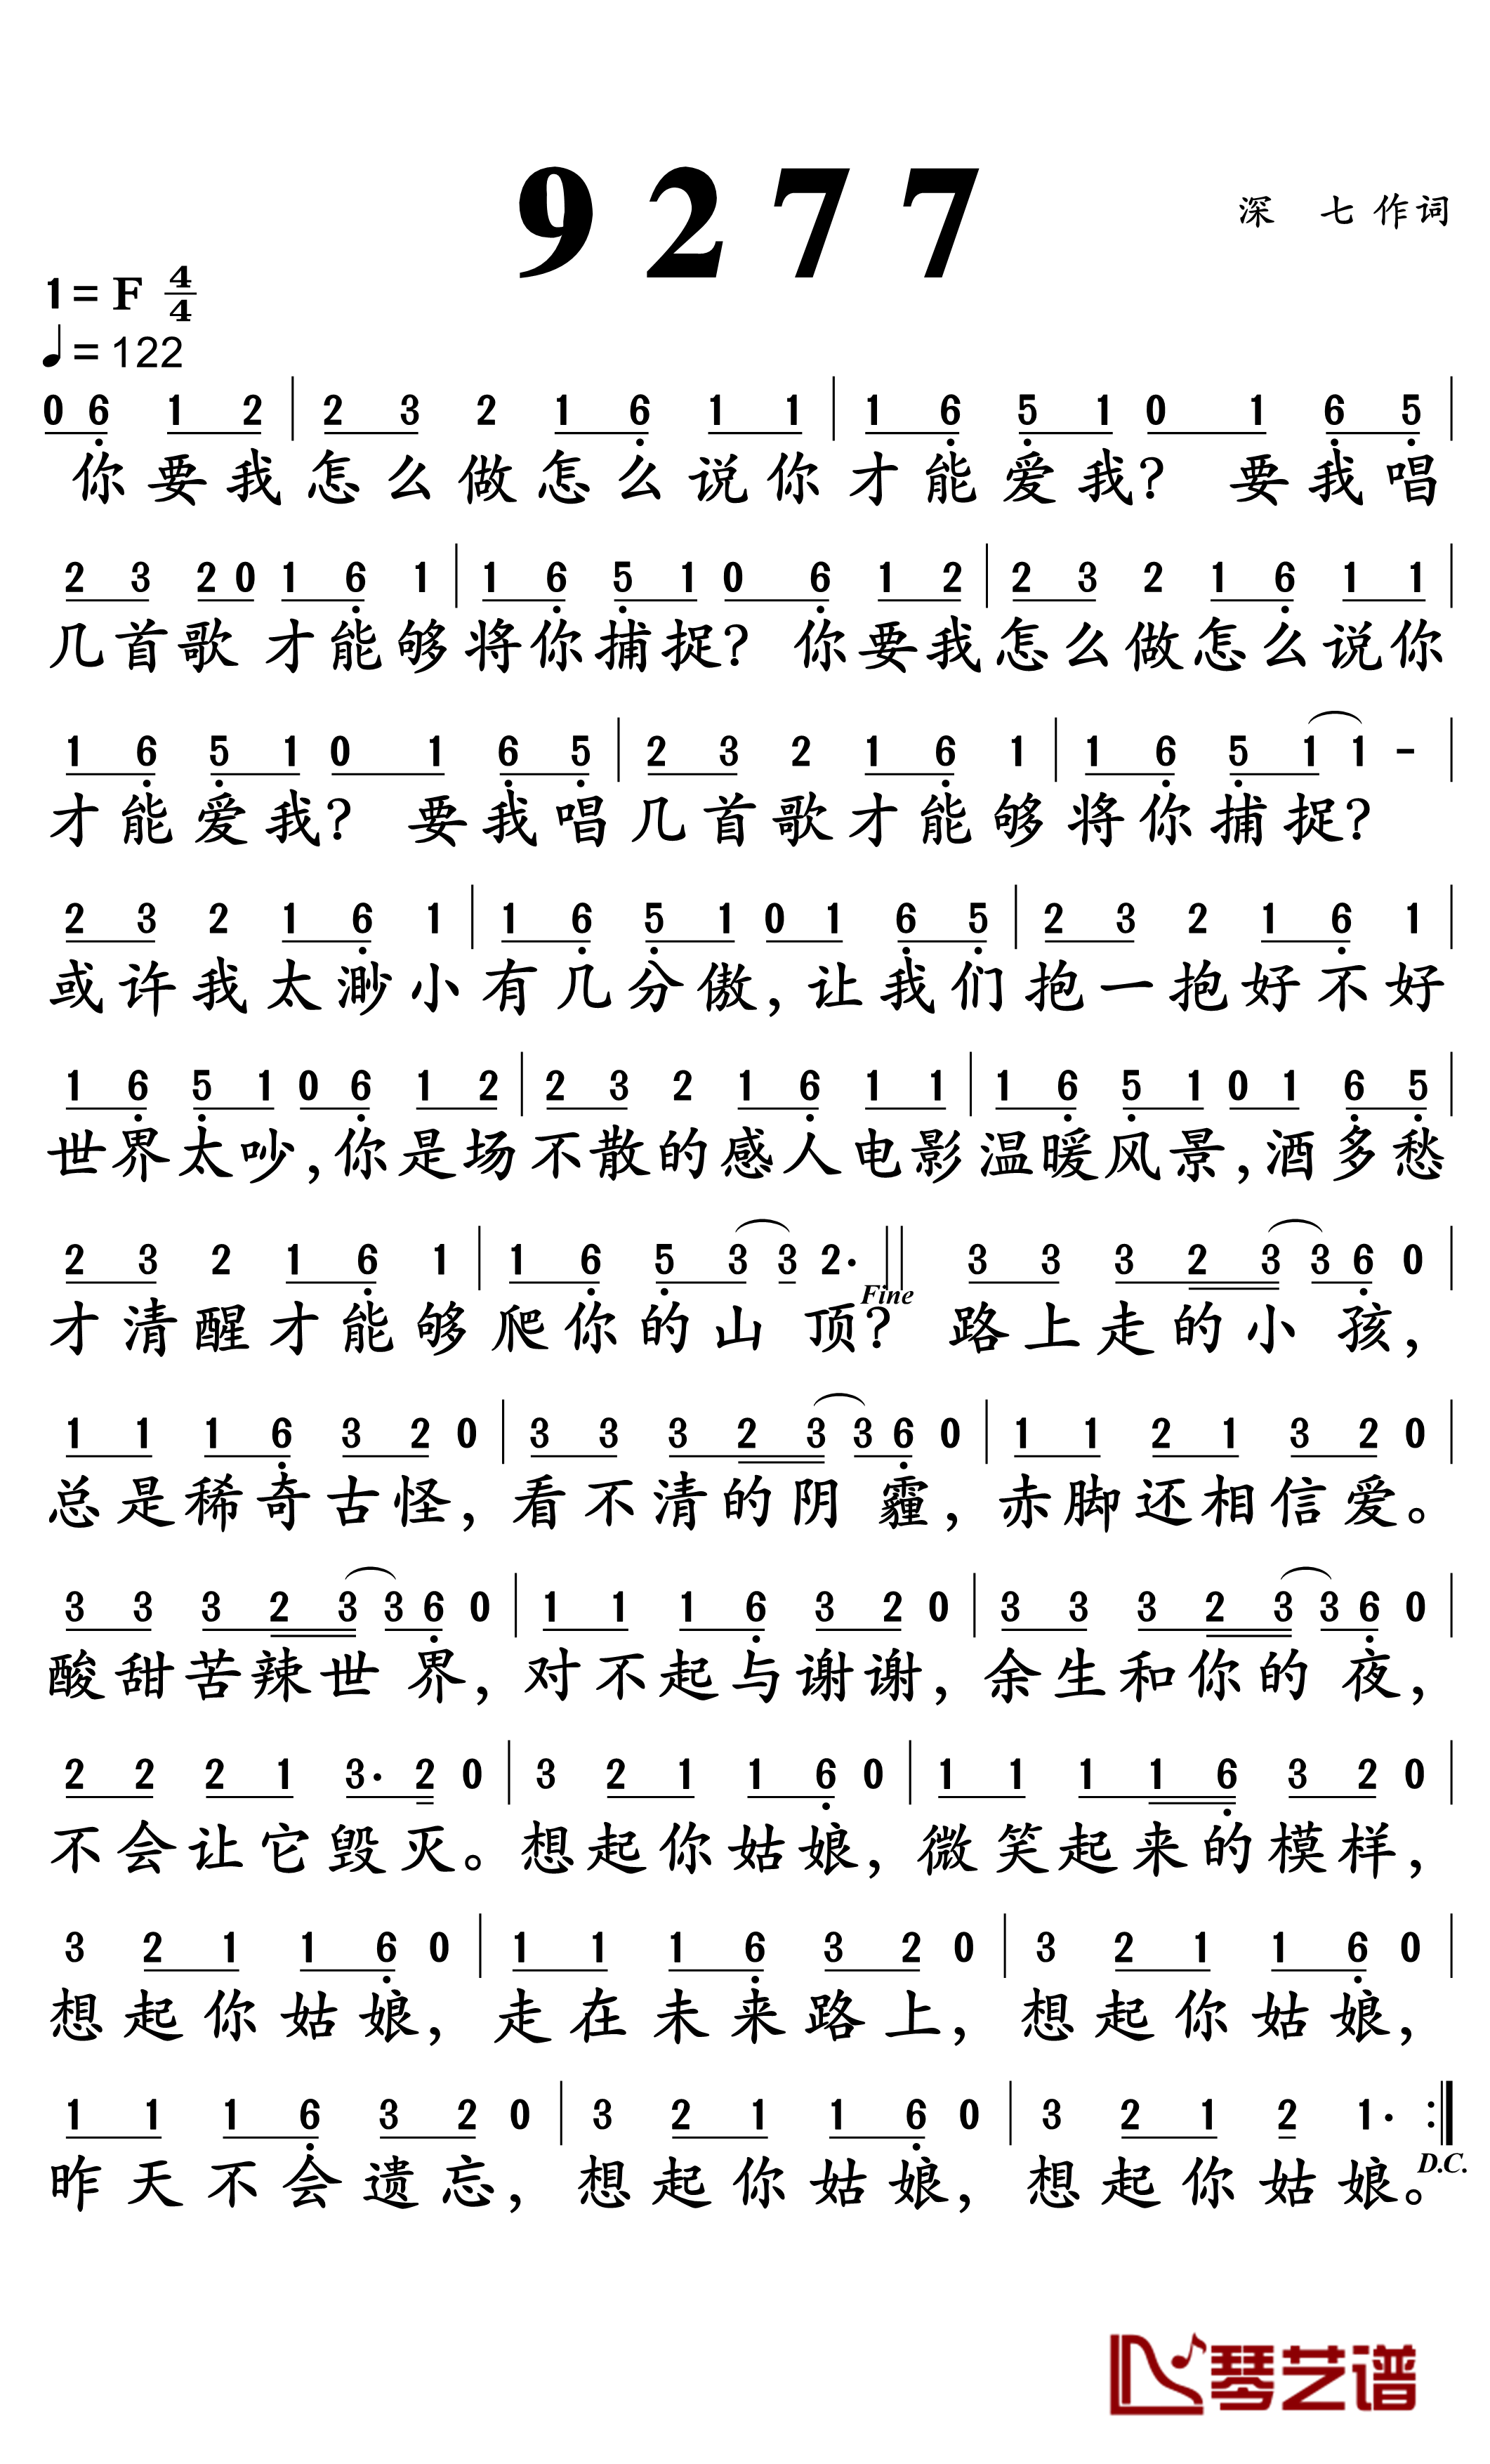 9 2 7 7
深 七 作词
1 = F 4/4
♩ = 122
0 6 1 2 | 2 3 2 1 6 1 1 | 1 6 5 1 0 1 6 5 |
你要我怎么做怎么说你才能爱我? 要我唱
2 3 2 0 1 6 1 | 1 6 5 1 0 6 1 2 | 2 3 2 1 6 1 1 |
几首歌 才能够将你捕捉? 你要我怎么做怎么说你
1 6 5 1 0 1 6 5 | 2 3 2 1 6 1 | 1 6 5 1 1 - |
才能爱我? 要我唱几首歌才能够将你捕捉?
2 3 2 1 6 1 | 1 6 5 1 0 1 6 5 | 2 3 2 1 6 1 |
或许我太渺小有几分傲,让我们抱一抱好不好
1 6 5 1 0 6 1 2 | 2 3 2 1 6 1 1 | 1 6 5 1 0 1 6 5 |
世界太吵,你是场不散的感人电影温暖风景,酒多愁
2 3 2 1 6 1 | 1 6 5 3 3 2· || 3 3 3 2 3 3 6 0 |
Fine
才清醒才能够爬你的山顶? 路上走的小孩,
1 1 1 6 3 2 0 | 3 3 3 2 3 3 6 0 | 1 1 2 1 3 2 0 |
总是稀奇古怪,看不清的阴霾,赤脚还相信爱。
3 3 3 2 3 3 6 0 | 1 1 1 6 3 2 0 | 3 3 3 2 3 3 6 0 |
酸甜苦辣世界,对不起与谢谢,余生和你的夜,
2 2 2 1 3· 2 0 | 3 2 1 1 6 0 | 1 1 1 1 6 3 2 0 |
不会让它毁灭。想起你姑娘,微笑起来的模样,
3 2 1 1 6 0 | 1 1 1 6 3 2 0 | 3 2 1 1 6 0 |
想起你姑娘,走在未来路上,想起你姑娘,
1 1 1 6 3 2 0 | 3 2 1 1 6 0 | 3 2 1 2 1· :|
昨天不会遗忘,想起你姑娘,想起你姑娘。
D.C.
琴艺谱